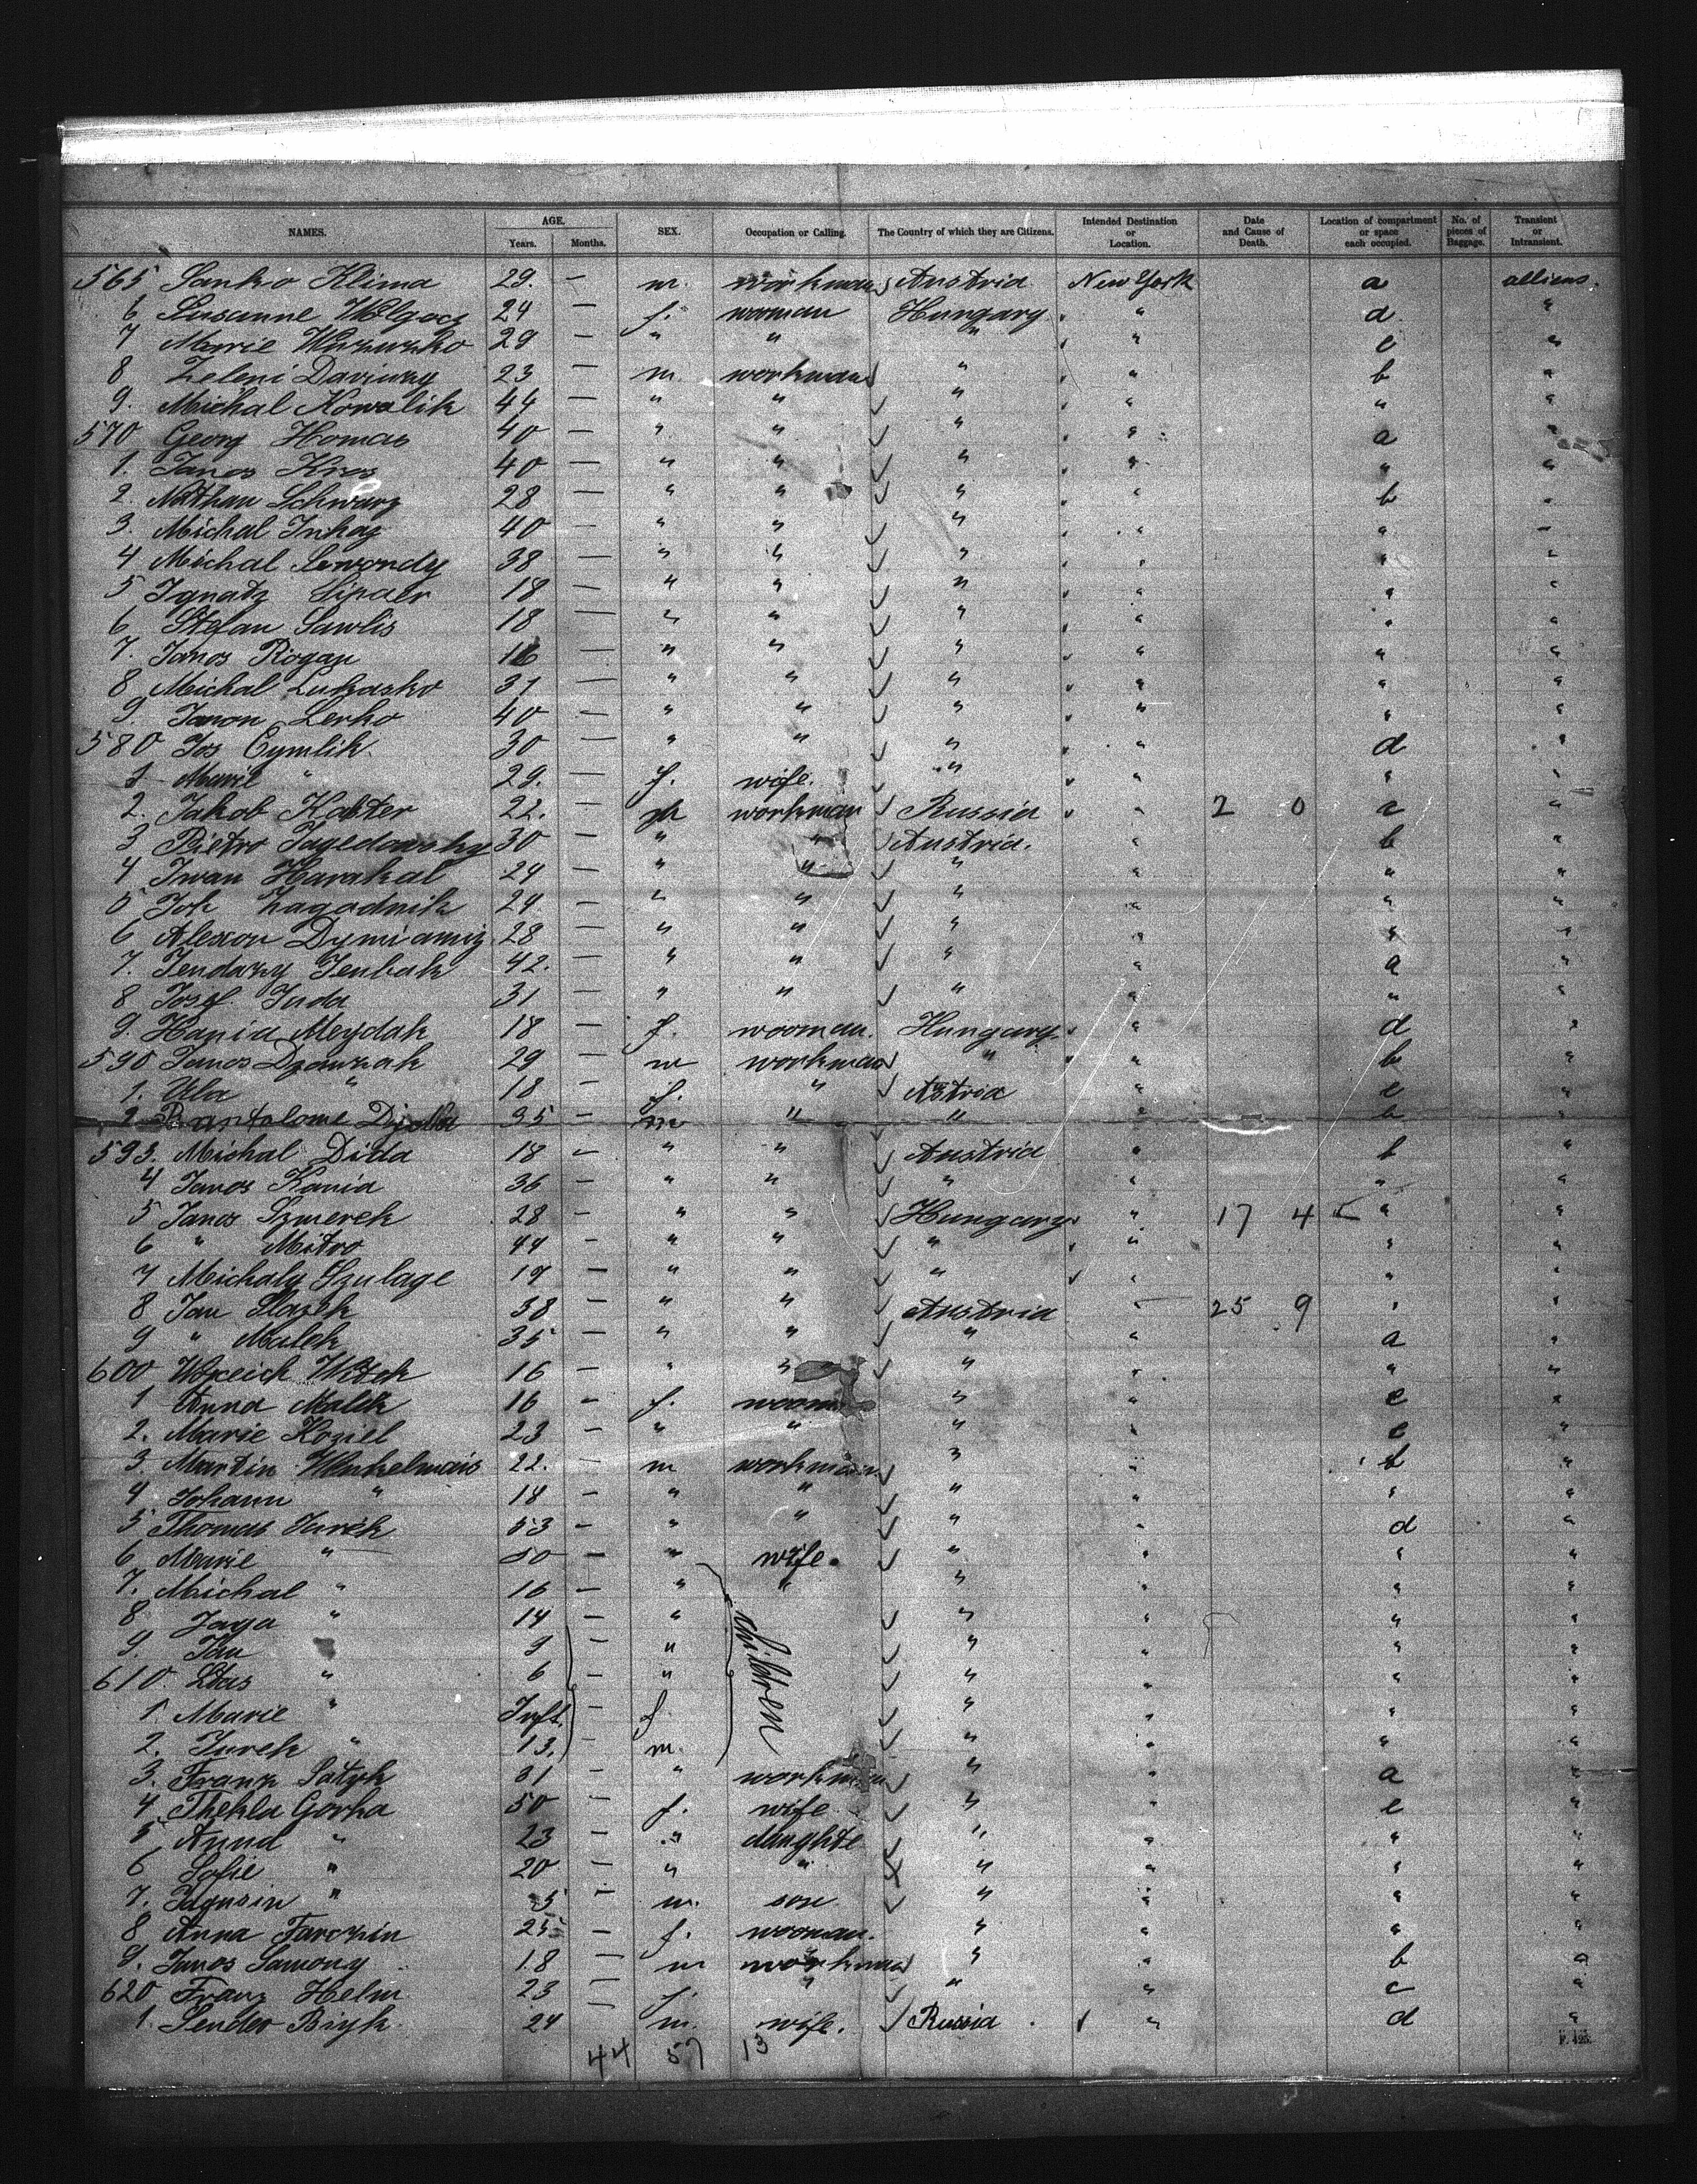 NAMES. AGE. Years. Months. SEX. Occupation or Calling. The Country of which they are Citizens. Intended Destination or Location. Date and Cause of Death. Location of compartment or space each occupied. No. of pieces of Baggage. Transient or Intransient.
565 Sanko Klima 29. — m. workman Austria New York a alliens.
6 Susanne 24 — f. wooman Hungary " d "
7 Marie 29 — " " " " e "
8 Zeleni 23 — m. workman " " b "
9. Michal Kowalik 44 — " " " " " "
570 Georg Homas 40 — " " " " a "
1. Janos Kros 40 — " " " " " "
2. Nathan Schwarz 28 — " " " " b "
3. Michal 40 — " " " " " "
4 Michal 38 — " " " " " "
5 Ignatz 18 — " " " " " "
6 Stefan Sawlis 18 — " " " " " "
7. Janos Rogan 16 — " " " " " "
8 Michal Lukasko 31 — " " " " " "
9. Lerko 40 — " " " " " "
580 Jos Cymlik 30 — " " " " d "
1 Marie " 29. — f. wife. " " " "
2. Jakob Kabter 22. — m workman Russia " 2 0 a "
3 Pietro 30 — " " Austria. " b "
4 Iwan Harakal 24 — " " " " " "
5 Joh Zagodnik 24 — " " " " " "
6 28 — " " " " " "
7. 42. — " " " " a "
8 Josef Juda 31 — " " " " " "
9. Hania Meydak 18 — f. wooman. Hungary. " d "
590 Janos 29 — m workman " " b "
1. Ula " 18 — f. " Austria " e "
2 35 — m " " " b "
593. Michal Dida 18 — " " Austria " b "
4 Janos Kania 36 — " " " " " "
5 Janos Szmerek 28 — " " Hungary " 17 4 " "
6 " Mitro 44 — " " " " " "
7 Michaly Szulage 19 — " " " " " "
8 Jan 38 — " " Austria " 25 9 " "
9 " Malek 35 — " " " " a "
600 16 — " " " " " "
1 Anna Malek 16 — f. " " e "
2. Marie Koziel 23 — " " " " e "
3. Martin 22. — m workman " " b "
4. Johann " 18 — " " " " " "
5 Thomas Jurek 53 — " " " " d "
6. Marie " 50 — " wife. " " " "
7. Michal " 16 — " " " " " "
8 Jaga " 14 — " children " " " "
9. Jan 9 — " " " " "
610. Stas " 6 — " " " " "
1 Marie " Inft. — f " " " "
2. Jurek " 13. — m. " " " "
3. Franz 31 — " workman " " a "
4 Thekla Gorka 50 — f. wife " " e "
5 Anna " 23 — " daughte " " " "
6 Sofie " 20 — " " " " " "
7. " 5 — m. son " " " "
8 Anna 25 — f. wooman. " " " "
9. Janos Samony 18 — m workman " " b "
620 Franz Helm 23 — f. " " " c "
1. Sender 24 m. wife. Russia " d "
44 57 13